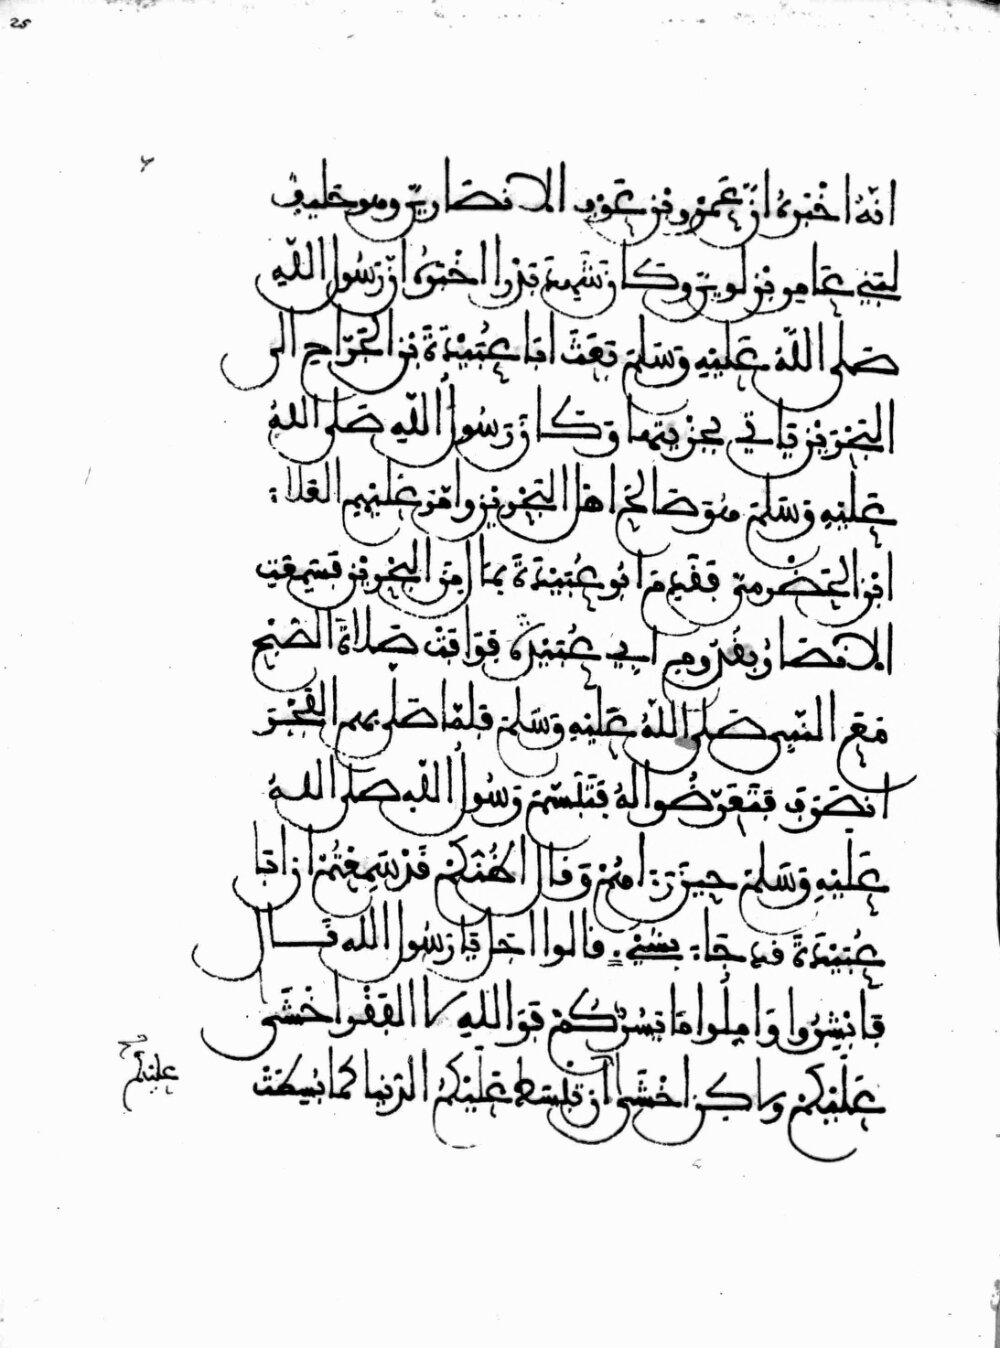 25
انه اخبره ان عمرو بن عوف الانصاري وهو حليف
لبني عامر بن لوي وكان شهد بدرا اخبره ان رسول الله
صلى الله عليه وسلم بعث ابا عبيدة بن الجراح الى
البحرين ياتي بجزيتها وكان رسول الله صلى الله
عليه وسلم هو صالح اهل البحرين وامر عليهم العلاء
ابن الحضرمي فقدم ابو عبيدة بمال من البحرين فسمعت
الانصار بقدوم ابي عبيدة فوافت صلاة الصبح
مع النبي صلى الله عليه وسلم فلما صلى بهم الفجر
انصرف فتعرضوا له فتبسم رسول الله صلى الله
عليه وسلم حين رءاهم وقال اظنكم قد سمعتم ان ابا
عبيدة قد جاء بشيء قالوا اجل يا رسول الله قال
فابشروا واملوا ما يسركم فوالله لا الفقر اخشى
عليكم ولاكن اخشى ان تبسط عليكم الدنيا كما بسطت
عليكم